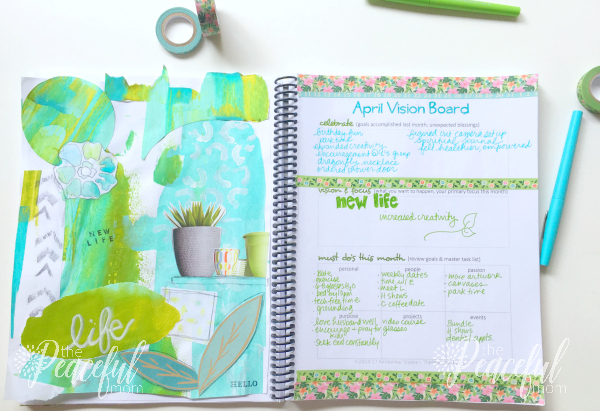 NEW
LIFE
life
HELLO
the
Peaceful
mom
April Vision Board
celebrate (goals accomplished last month, unexpected blessings)
birthday fun
park time
expanded creativity
encouragement @ C's group
dragonfly necklace
ordered shower door
figured out camera set up
spiritual journal
felt healthier, empowered
vision & focus (what you want to happen, your primary focus this month)
new life
increased creativity
must do's this month (review goals & master task list)
personal
exercise
bed by 10pm
tech free time
grounding
people
weekly dates
time w/ E
meet L
H shows
C coffee date
passion
more artwork
canvases
park time
purpose
love husband well
encourage + pray for
kids
seek God continually
projects
video course
glasses
events
Bundle
E shows
dental appts.
the
Peaceful
mom